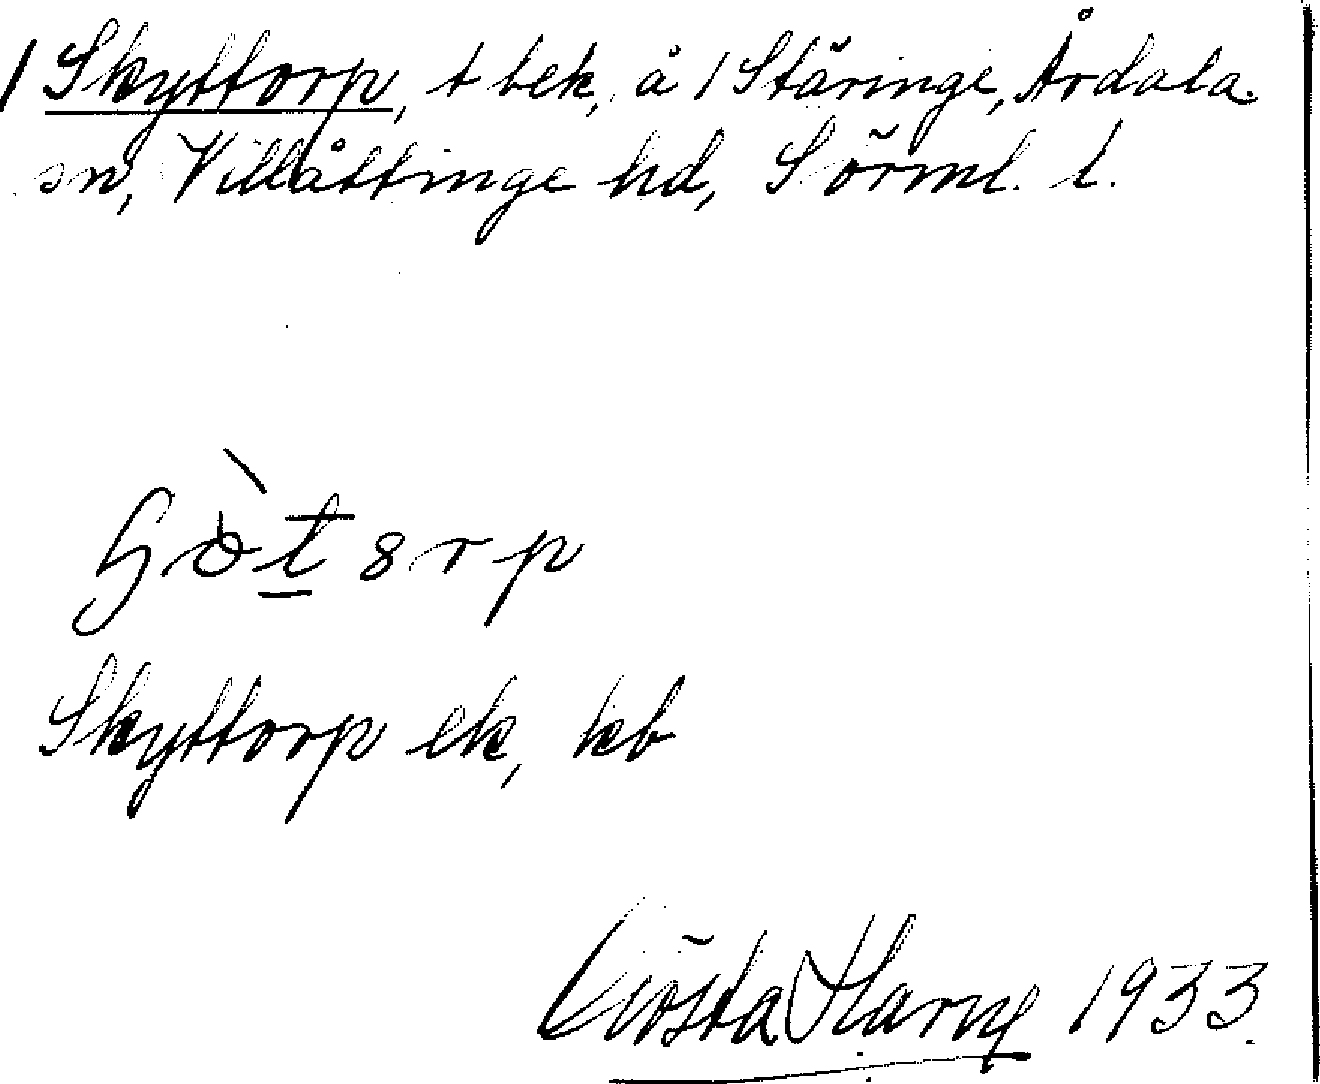 1 Skyttorp, t bek, å 1 Stäringe, Årdala
sn, Villåttinge hd, Sörml. l.
Skyttorp ek, kb
Gösta 1933.